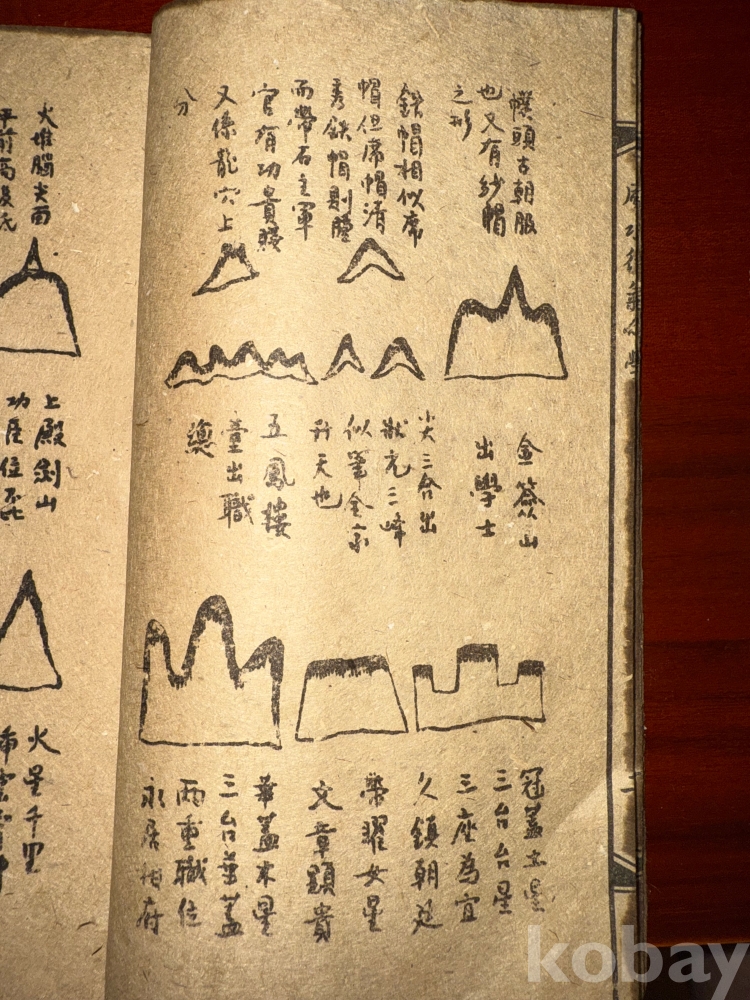 幞頭古朝服
也又有紗帽
之形
鉄帽相似席
帽但席帽清
秀鉄帽則腫
而帶石主軍
官有功貴賤
又係龍穴上
分
金簽山
出學士
尖三台出
狀元三峰
似筆金
升天也
五鳳樓
臺出職
冠蓋土星
三台台星
三座為宜
久鎮朝廷
榮耀女星
文章顕貴
華蓋木星
三台華蓋
兩重職位
永居相府
火堆腦尖而
平前高後
上殿劍山
功臣位
火星千里
kobay